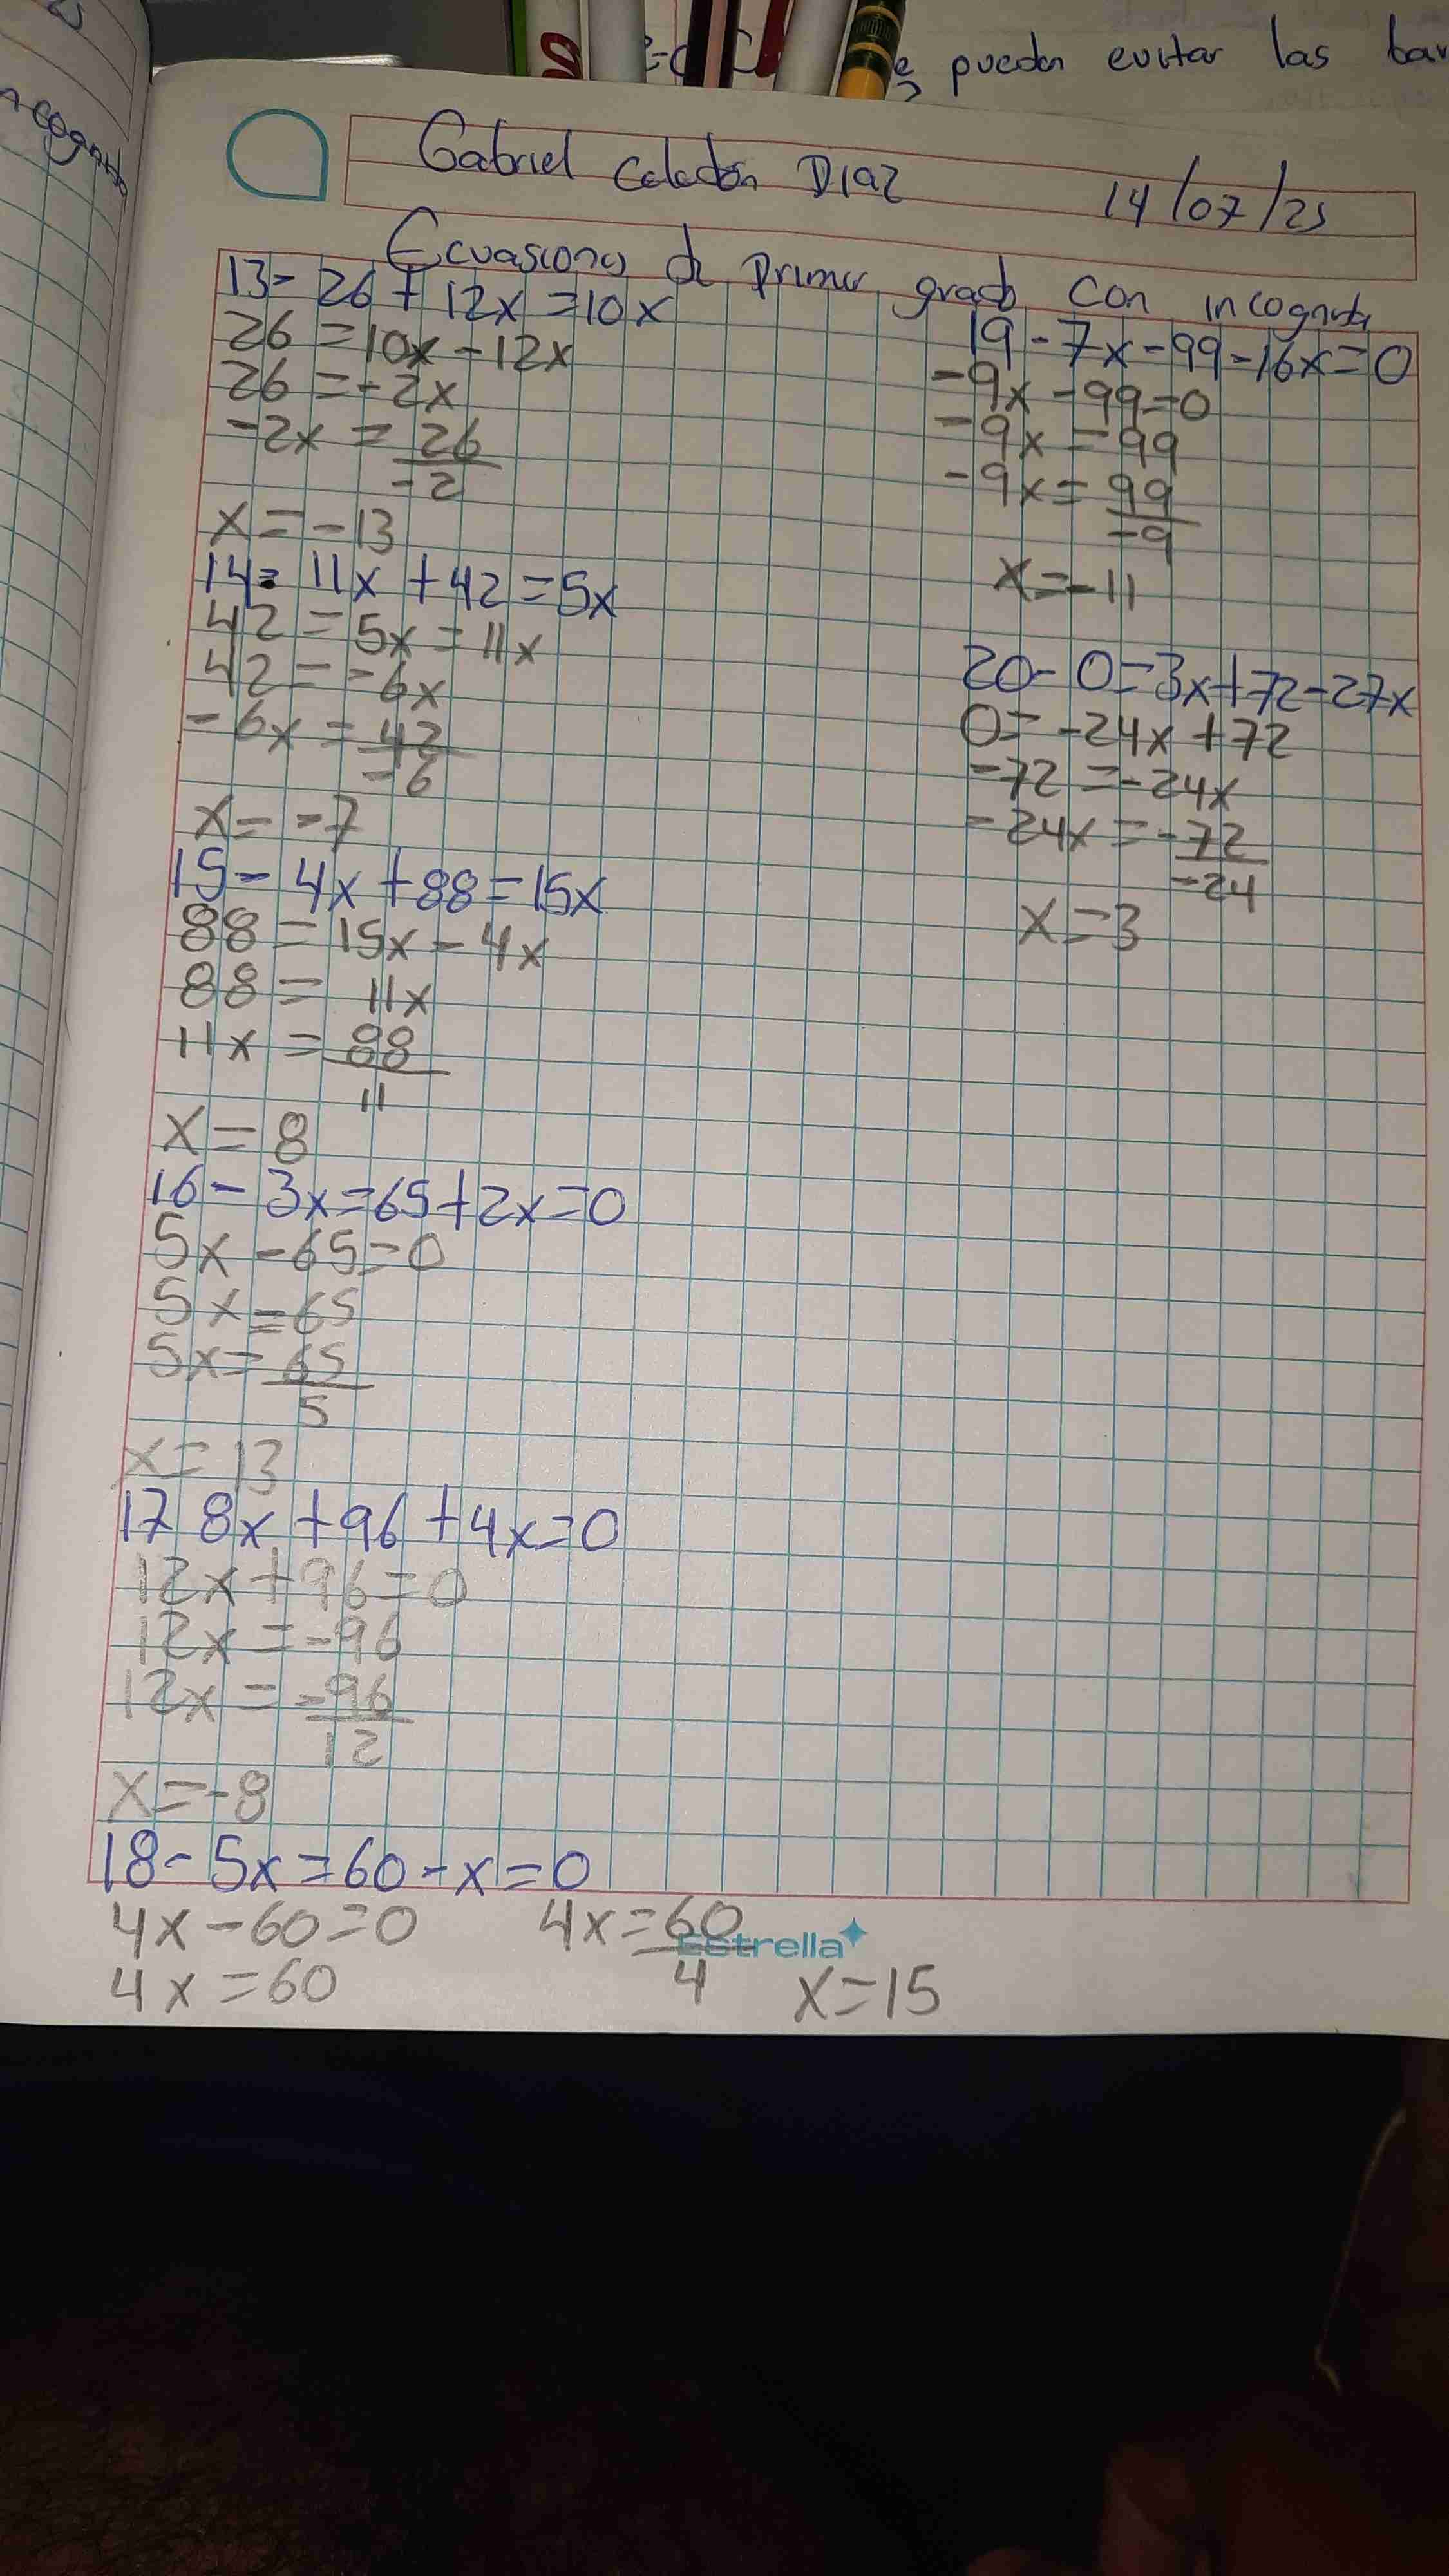 pueden evitar las
Gabriel Celedón Diaz
14/07/25
Ecuasiones de primer grado con incognita
13- 26 + 12x = 10x
26 = 10x - 12x
26 = -2x
-2x = 26
-2
x = -13
14- 11x + 42 = 5x
42 = 5x = 11x
42 = -6x
-6x = 42
-6
x = -7
15- 4x + 88 = 15x
88 = 15x - 4x
88 = 11x
11x = 88
11
x = 8
16- 3x=65+2x=0
5x -65=0
5x =65
5x= 65
5
x= 13
17 8x +96 +4x=0
12x +96=0
12x =-96
12x = -96
12
x=-8
18- 5x =60 -x=0
4x -60=0
4x =60
4x= 60
4
x=15
19-7x-99-16x=0
-9x -99=0
-9x = 99
-9x= 99
-9
x=-11
20- 0=3x+72-27x
0= -24x +72
-72 =-24x
-24x = -72
-24
x=3
Estrella